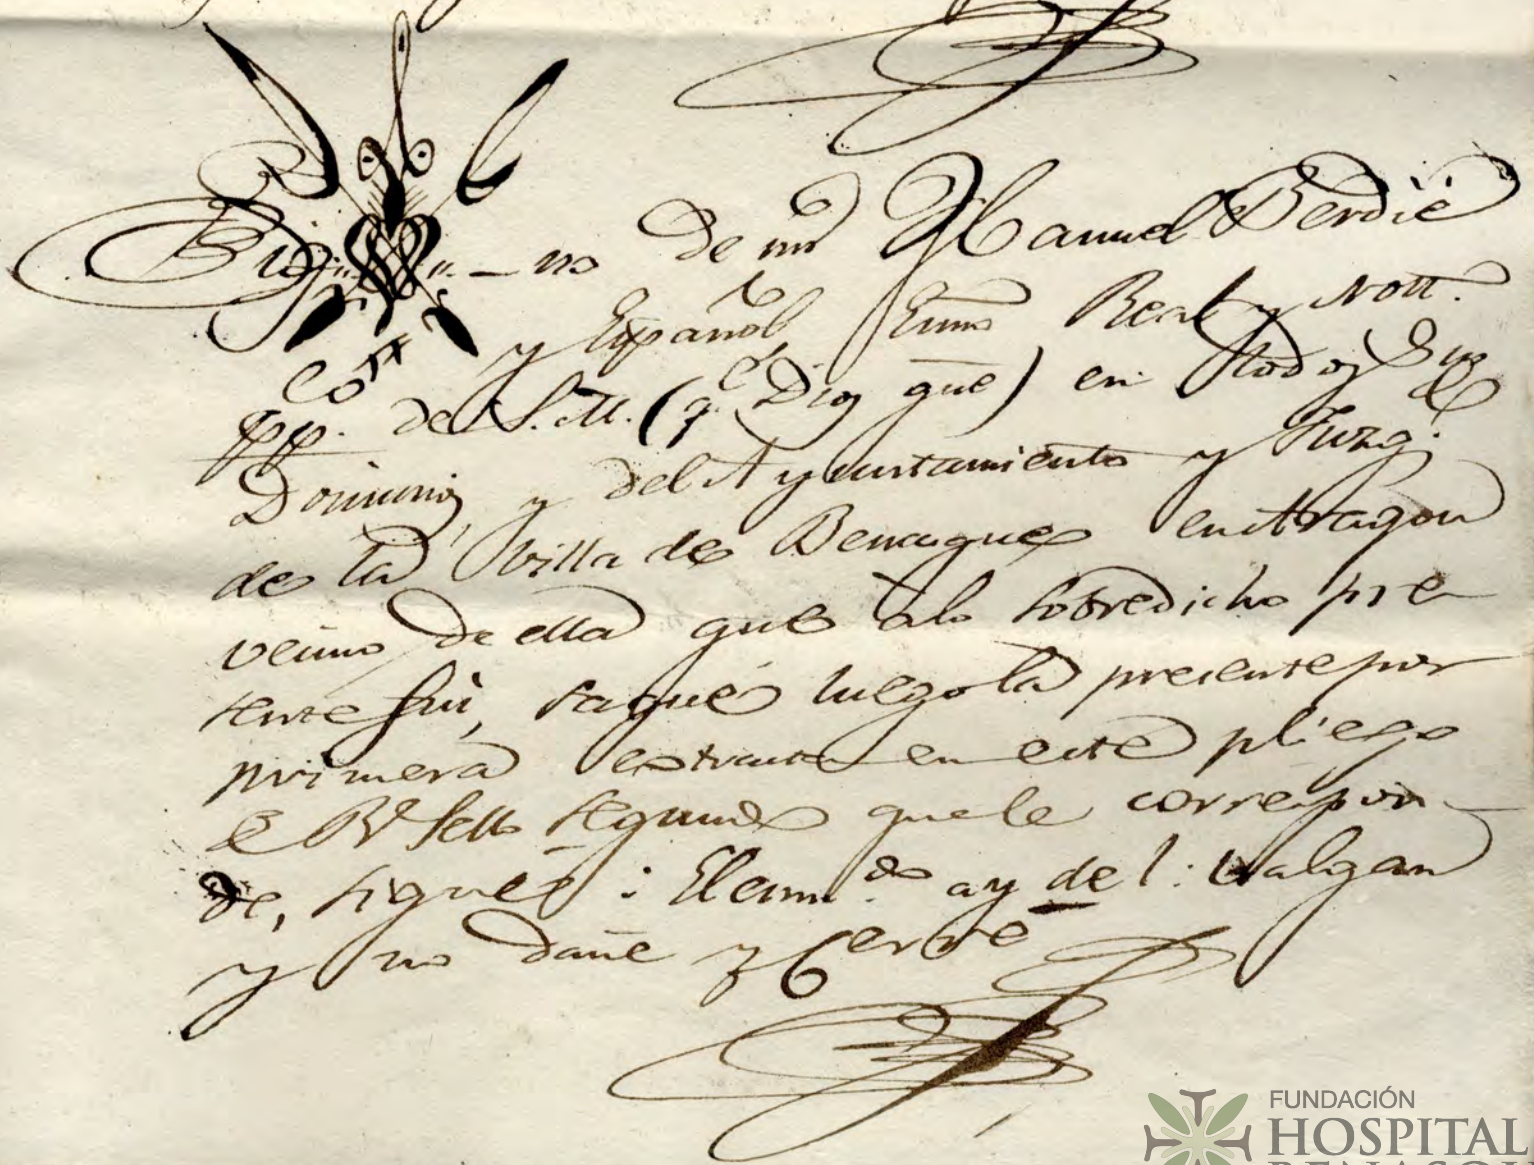 Sig-no de mi Manuel Berdié
y Español, Essno Real y Nott.
pp. de S. M. (q.e Dios gue) en todos sus
Dominios, y del Ayuntamiento y Juzg.
de la villa de Benasque en Aragon
vecino de ella que a lo sobredicho pre-
sente fui, saqué luego la presente por
primera extracta en este pliego
R.l sello segundo que le correspon-
de, signé: El enm.do ay de l: valgan
y no dañe y Cerré
FUNDACIÓN
HOSPITAL